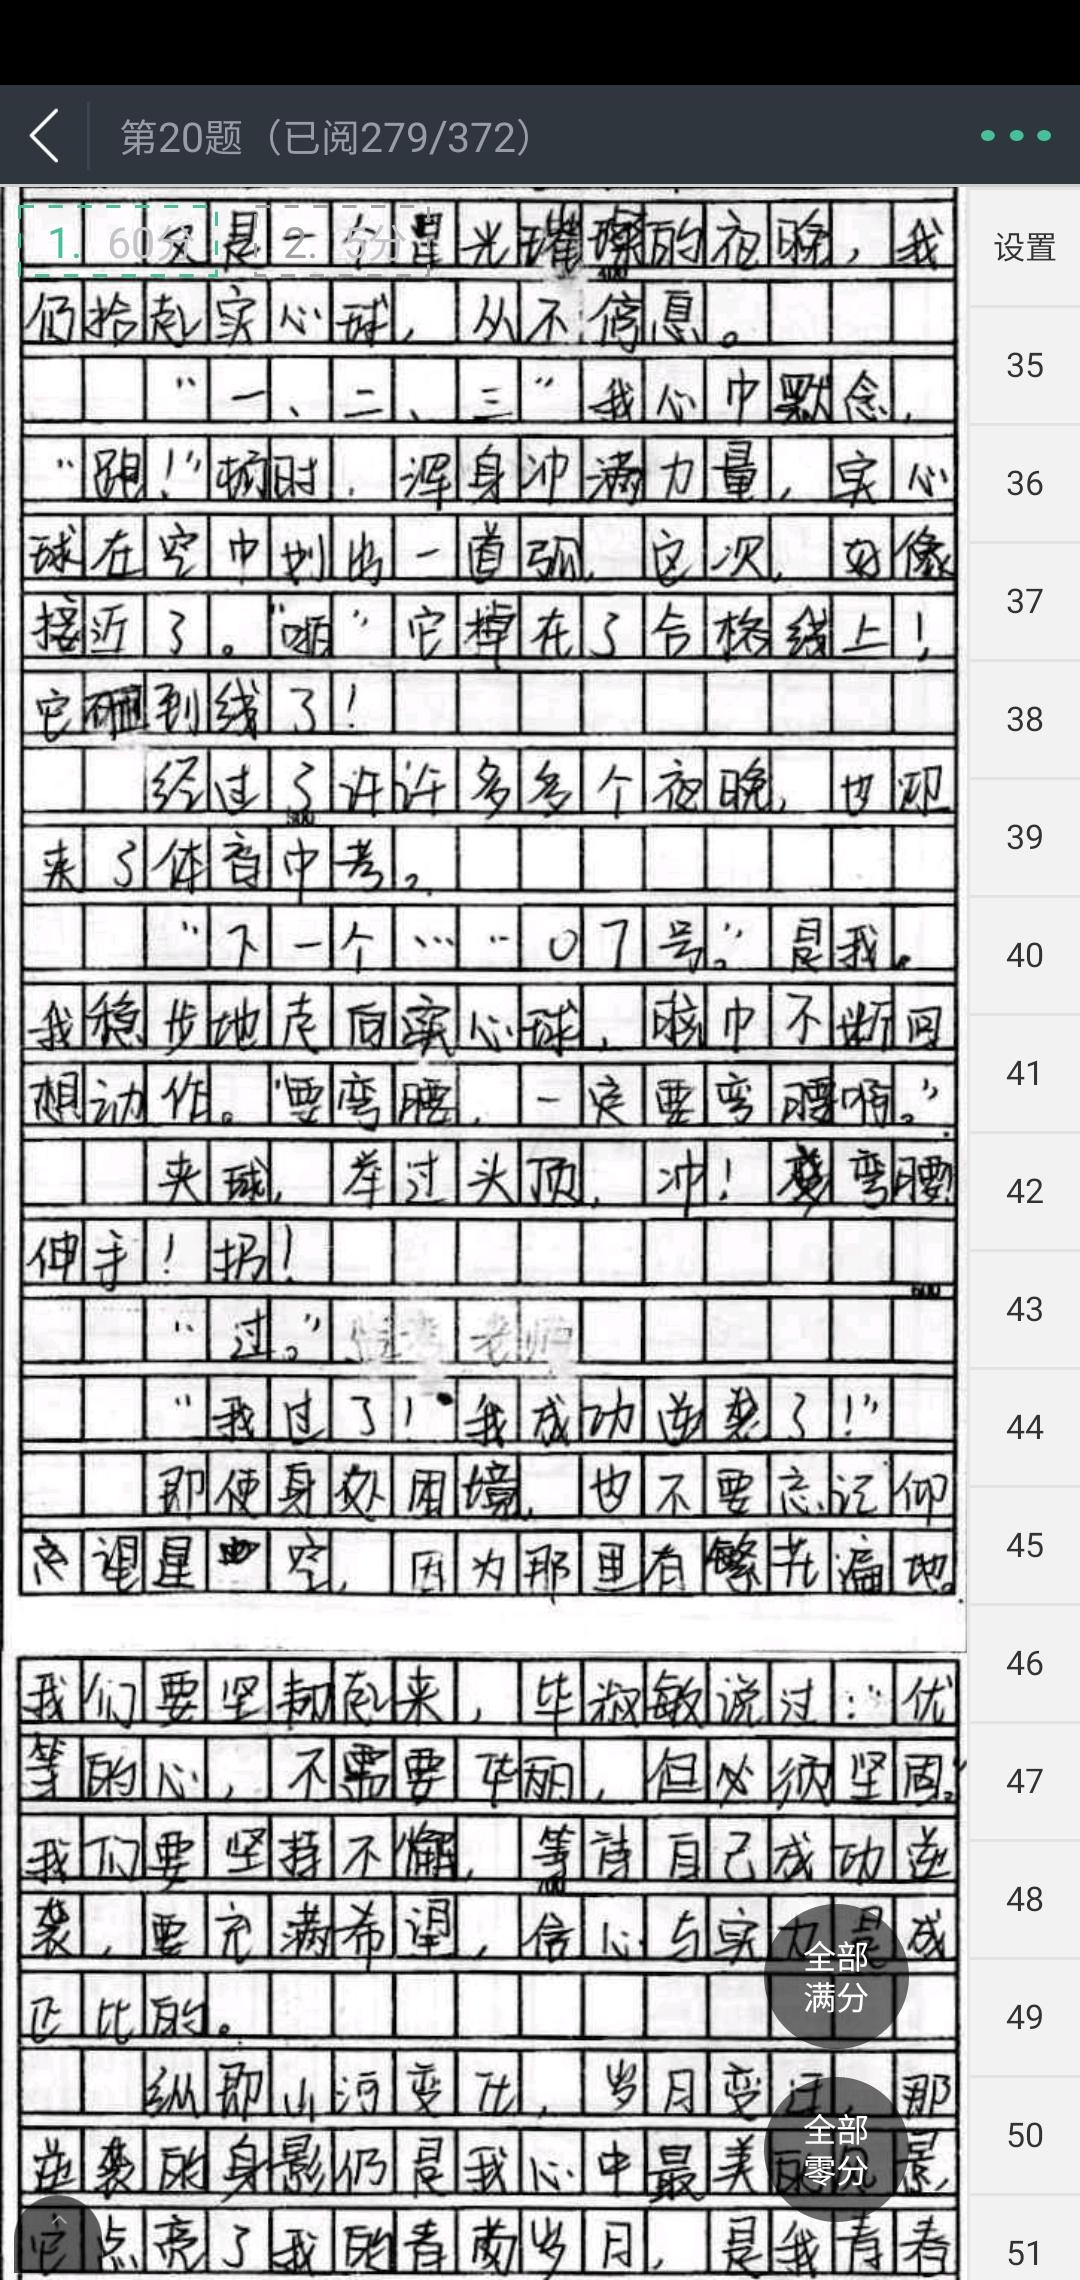 第20题（已阅279/372）
设置
35
36
37
38
39
40
41
42
43
44
45
46
47
48
49
50
51
1. 60分 2. 5分
又是一个星光璀璨的夜晚，我
400
仍拾起实心球，从不停息。
“一、二、三”我心中默念，
“跑！”顿时，浑身冲满力量，实心
球在空中划出一道弧，这次，好像
接近了。“啪”它掉在了合格线上！
它砸到线了！
经过了许许多多个夜晚，也迎
500
来了体育中考。
“下一个……07号。”是我。
我稳步地走向实心球，脑中不断回
想动作。“要弯腰，一定要弯腰啊。”
夹球，举过头顶，冲！弯腰！
伸手！扔！
600
“过。”
“我过了！我成功逆袭了！”
即使身处困境，也不要忘记仰
望星空，因为那里有繁花遍地。
我们要坚韧起来，毕淑敏说过：“优
等的心，不需要华丽，但必须坚固。”
我们要坚持不懈，等待自己成功逆
700
袭，要充满希望，信心与实力是成
正比的。
纵即山河变化，岁月变迁，那
逆袭的身影仍是我心中最美的风景，
它点亮了我的青葱岁月，是我青春
全部满分
全部零分